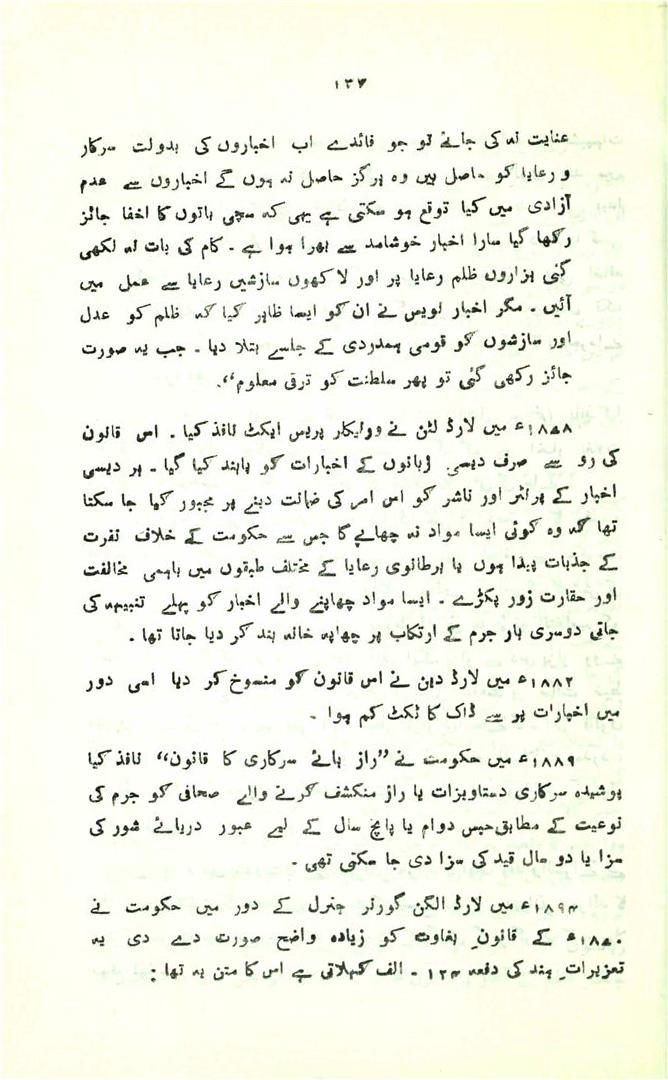 ۱۳۷
عنایت نہ کی جائے تو جو فائدے اب اخباروں کی بدولت سرکار
و رعایا کو حاصل ہیں وہ ہرگز حاصل نہ ہوں گے اخباروں سے عدم
آزادی میں کیا توقع ہو سکتی ہے یہی کہ سچی باتوں کا اخفا جائز
رکھا گیا سارا اخبار خوشامد سے بھرا ہوا ہے ۔ کام کی بات نہ لکھی
گئی ہزاروں ظلم رعایا پر اور لاکھوں سازشیں رعایا سے عمل میں
آئیں ۔ مگر اخبار نویس نے ان کو ایسا ظاہر کیا کہ ظلم کو عدل
اور سازشوں کو قومی ہمدردی کے جلسے بتلا دیا ۔ جب یہ صورت
جائز رکھی گئی تو پھر سلطنت کو ترقی معلوم“۔
۱۸۷۸ء میں لارڈ لٹن نے ورنیکلر پریس ایکٹ نافذ کیا ۔ اس قانون
کی رو سے صرف دیسی زبانوں کے اخبارات کو پابند کیا گیا ۔ ہر دیسی
اخبار کے پرنٹر اور ناشر کو اس امر کی ضمانت دینے پر مجبور کیا جا سکتا
تھا کہ وہ کوئی ایسا مواد نہ چھاپے گا جس سے حکومت کے خلاف نفرت
کے جذبات پیدا ہوں یا برطانوی رعایا کے مختلف طبقوں میں باہمی مخالفت
اور حقارت زور پکڑے ۔ ایسا مواد چھاپنے والے اخبار کو پہلے تنبیہہ کی
جاتی دوسری بار جرم کے ارتکاب پر چھاپہ خانہ بند کر دیا جاتا تھا ۔
۱۸۸۲ء میں لارڈ رپن نے اس قانون کو منسوخ کر دیا اسی دور
میں اخبارات پر سے ڈاک کا ٹکٹ کم ہوا ۔
۱۸۸۹ء میں حکومت نے ”راز ہائے سرکاری کا قانون“ نافذ کیا
پوشیدہ سرکاری دستاویزات یا راز منکشف کرنے والے صحافی کو جرم کی
نوعیت کے مطابق حبس دوام یا پانچ سال کے لیے عبور دریائے شور کی
سزا یا دو سال قید کی سزا دی جا سکتی تھی ۔
میں لارڈ الگن گورنر جنرل کے دور میں حکومت نے
۱۸۷۰ء کے قانونِ بغاوت کو زیادہ واضح صورت دے دی یہ
تعزیراتِ ہند کی دفعہ ۱۲۴ ۔ الف کہلاتی ہے اس کا متن یہ تھا :